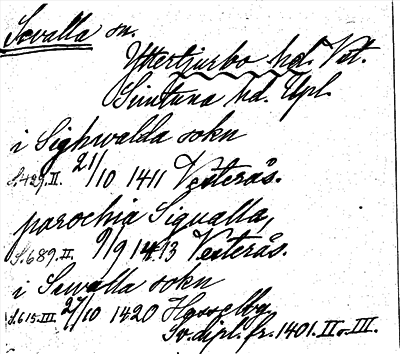 Sevalla sn.
Yttertjurbo hd. Vet.
Simtuna hd. Upl.
i Sighwalda sokn
S.429.II. 21/10 1411 Vesterås.
parochia Sigualla,
S.689.II. 9/9 1413 Vesterås.
i Sewalla sokn
S.615.III 27/10 1420 Hysselby
Sv. dipl. fr. 1401. II o. III.